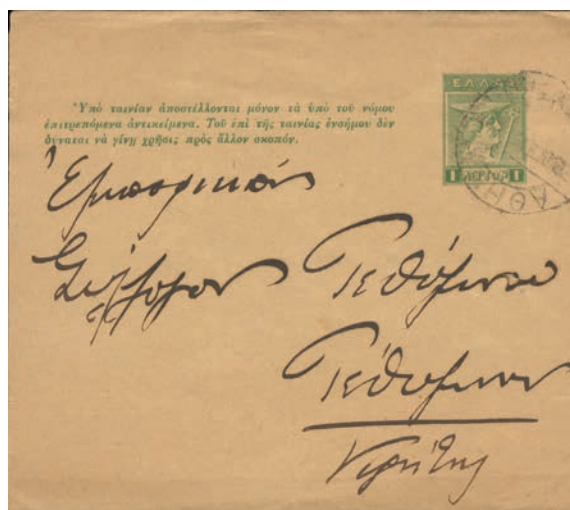 ΕΛΛΑΣ
Ὑπὸ ταινίαν ἀποστέλλονται μόνον τὰ ὑπὸ τοῦ νόμου
ἐπιτρεπόμενα ἀντικείμενα. Τοῦ ἐπὶ τῆς ταινίας ἐνσήμου δὲν
δύναται νὰ γίνῃ χρῆσις πρὸς ἄλλον σκοπόν.
1 ΛΕΠΤΟΝ 1
ΑΘΗ
Ἐμπορικὸν
Σύλλογον Ρεθύμνου
Ρέθυμνον
Κρήτης